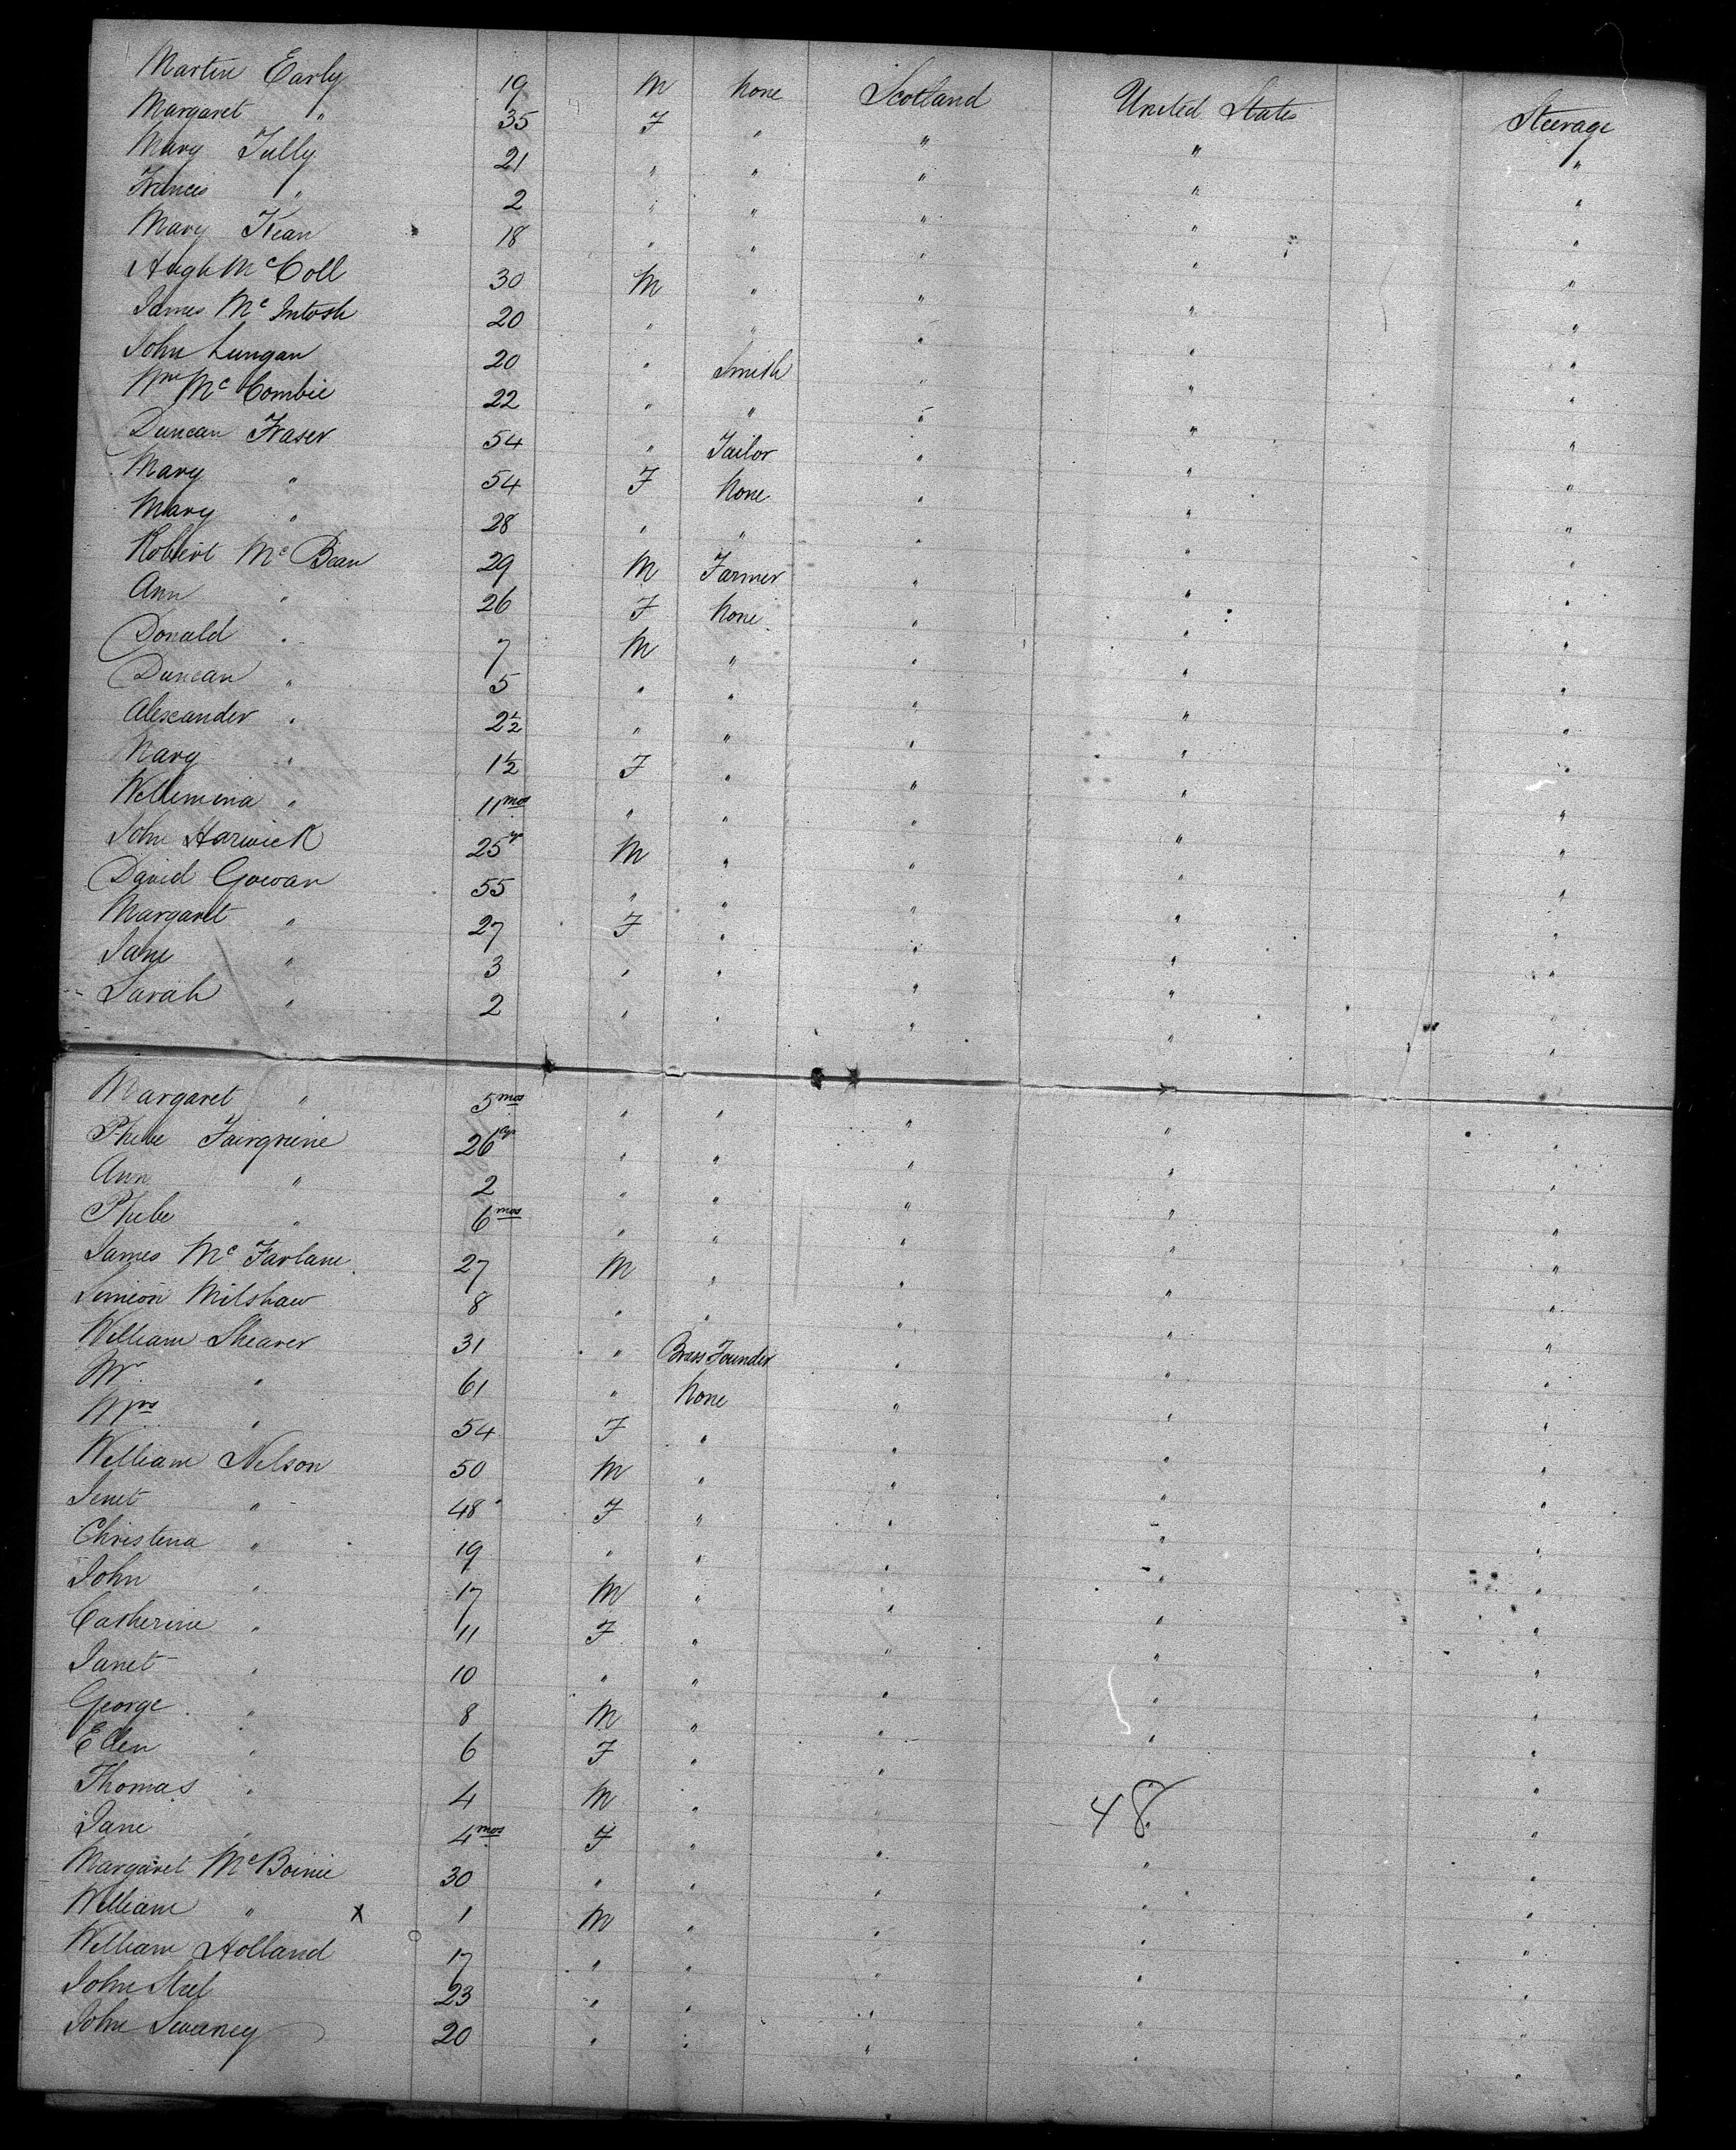 Martin Early 19 M None Scotland United States Steerage
Margaret " 35 F " " " "
Mary Tully 21 " " " " "
Francis " 2 " " " " "
Mary Kean 18 " " " " "
Hugh McColl 30 M " " " "
James McIntosh 20 " " " " "
John Lungan 20 " Smith " " "
Wm McCombie 22 " " " " "
Duncan Fraser 54 " Tailor " " "
Mary " 54 F None " " "
Mary " 28 " " " " "
Robert McBean 29 M Farmer " " "
Ann " 26 F None " " "
Donald " 7 M " " " "
Duncan " 5 " " " " "
Alexander " 2½ " " " " "
Mary " 1½ F " " " "
Willemina " 11 mos " " " " "
John Harwick 25 yr M " " " "
David Gowan 55 " " " " "
Margaret " 27 F " " " "
Jane " 3 " " " " "
Sarah " 2 " " " " "
Margaret " 5 mos " " " " "
Phebe Fairgrieve 26 yr " " " " "
Ann " 2 " " " " "
Phebe " 6 mos " " " " "
James McFarlane 27 M " " " "
Simeon Milshaw 8 " " " " "
William Shearer 31 " Brass Founder " " "
Mr " 61 " None " " "
Mrs " 54 F " " " "
William Nelson 50 M " " " "
Jenet " 48 F " " " "
Christina " 19 " " " " "
John " 17 M " " " "
Catherine " 11 F " " " "
Janet " 10 " " " " "
George " 8 M " " " "
Ellen " 6 F " " " "
Thomas " 4 M " " " "
48
Jane " 4 mos F " " " "
Margaret McBeinie 30 " " " " "
William " x 1 M " " " "
William Holland 17 " " " " "
John Steel 23 " " " " "
John Sweeney 20 " " " " "